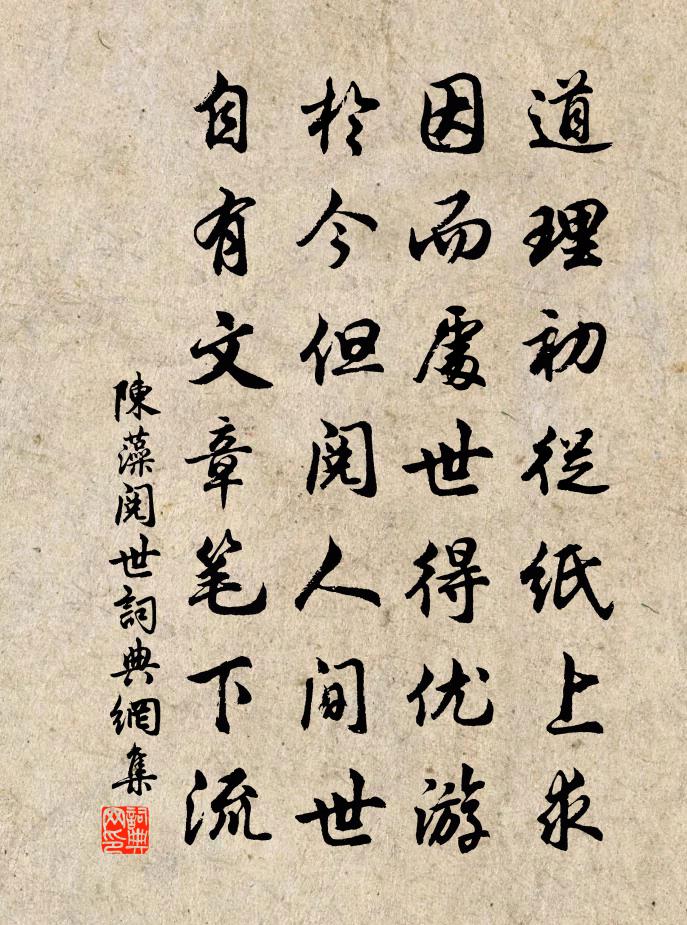 道理初從紙上求
因而處世得优游
於今但閱人间世
自有文章笔下流
陳藻閱世詞典網集
詞典网印